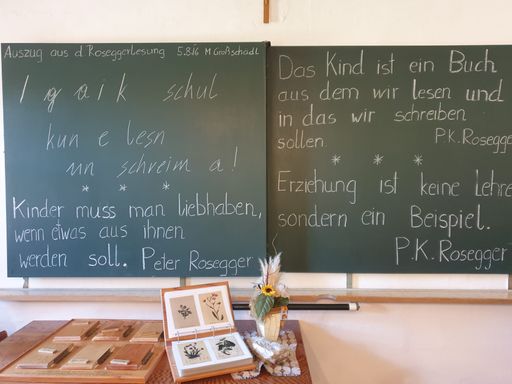 Auszug aus d. Roseggerlesung 5.8.16 M Großschadl
I g a i k schul
kun e lesn
un schreim a!
* * *
Kinder muss man liebhaben,
wenn etwas aus ihnen
werden soll. Peter Rosegger
Das Kind ist ein Buch
aus dem wir lesen und
in das wir schreiben
sollen. P.K. Rosegger
* * *
Erziehung ist keine Lehre
sondern ein Beispiel.
P.K. Rosegger